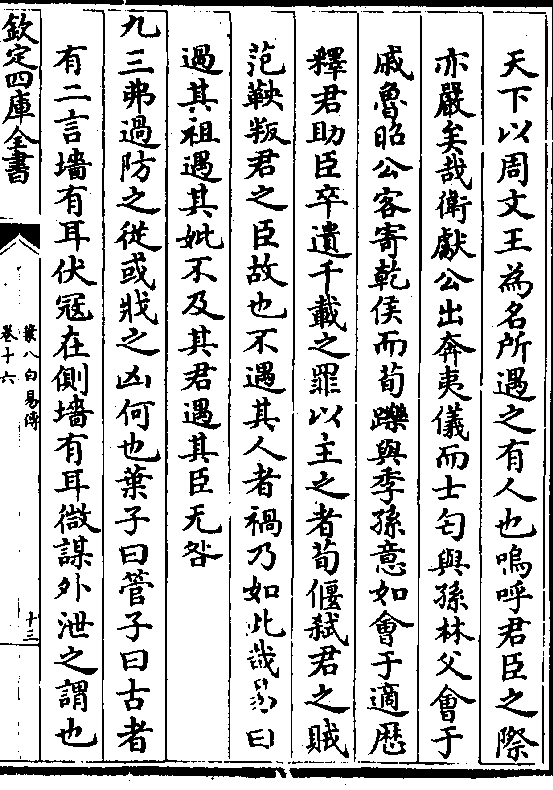 天下以周文王為名所遇之有人也嗚呼君臣之際
亦嚴矣哉衛獻公出奔夷儀而士匄與孫林父會于
戚魯昭公客寄乾侯而荀躒與季孫意如會于適歷
釋君助臣卒遺千載之罪以主之者荀偃弑君之賊
范鞅叛君之臣故也不遇其人者禍乃如此哉易曰
過其祖遇其妣不及其君遇其臣无咎
九三弗過防之從或戕之凶何也葉子曰管子曰古者
有二言墻有耳伏冦在側墻有耳微謀外泄之謂也
欽定四庫全書
葉八白易傳
卷十六
十三